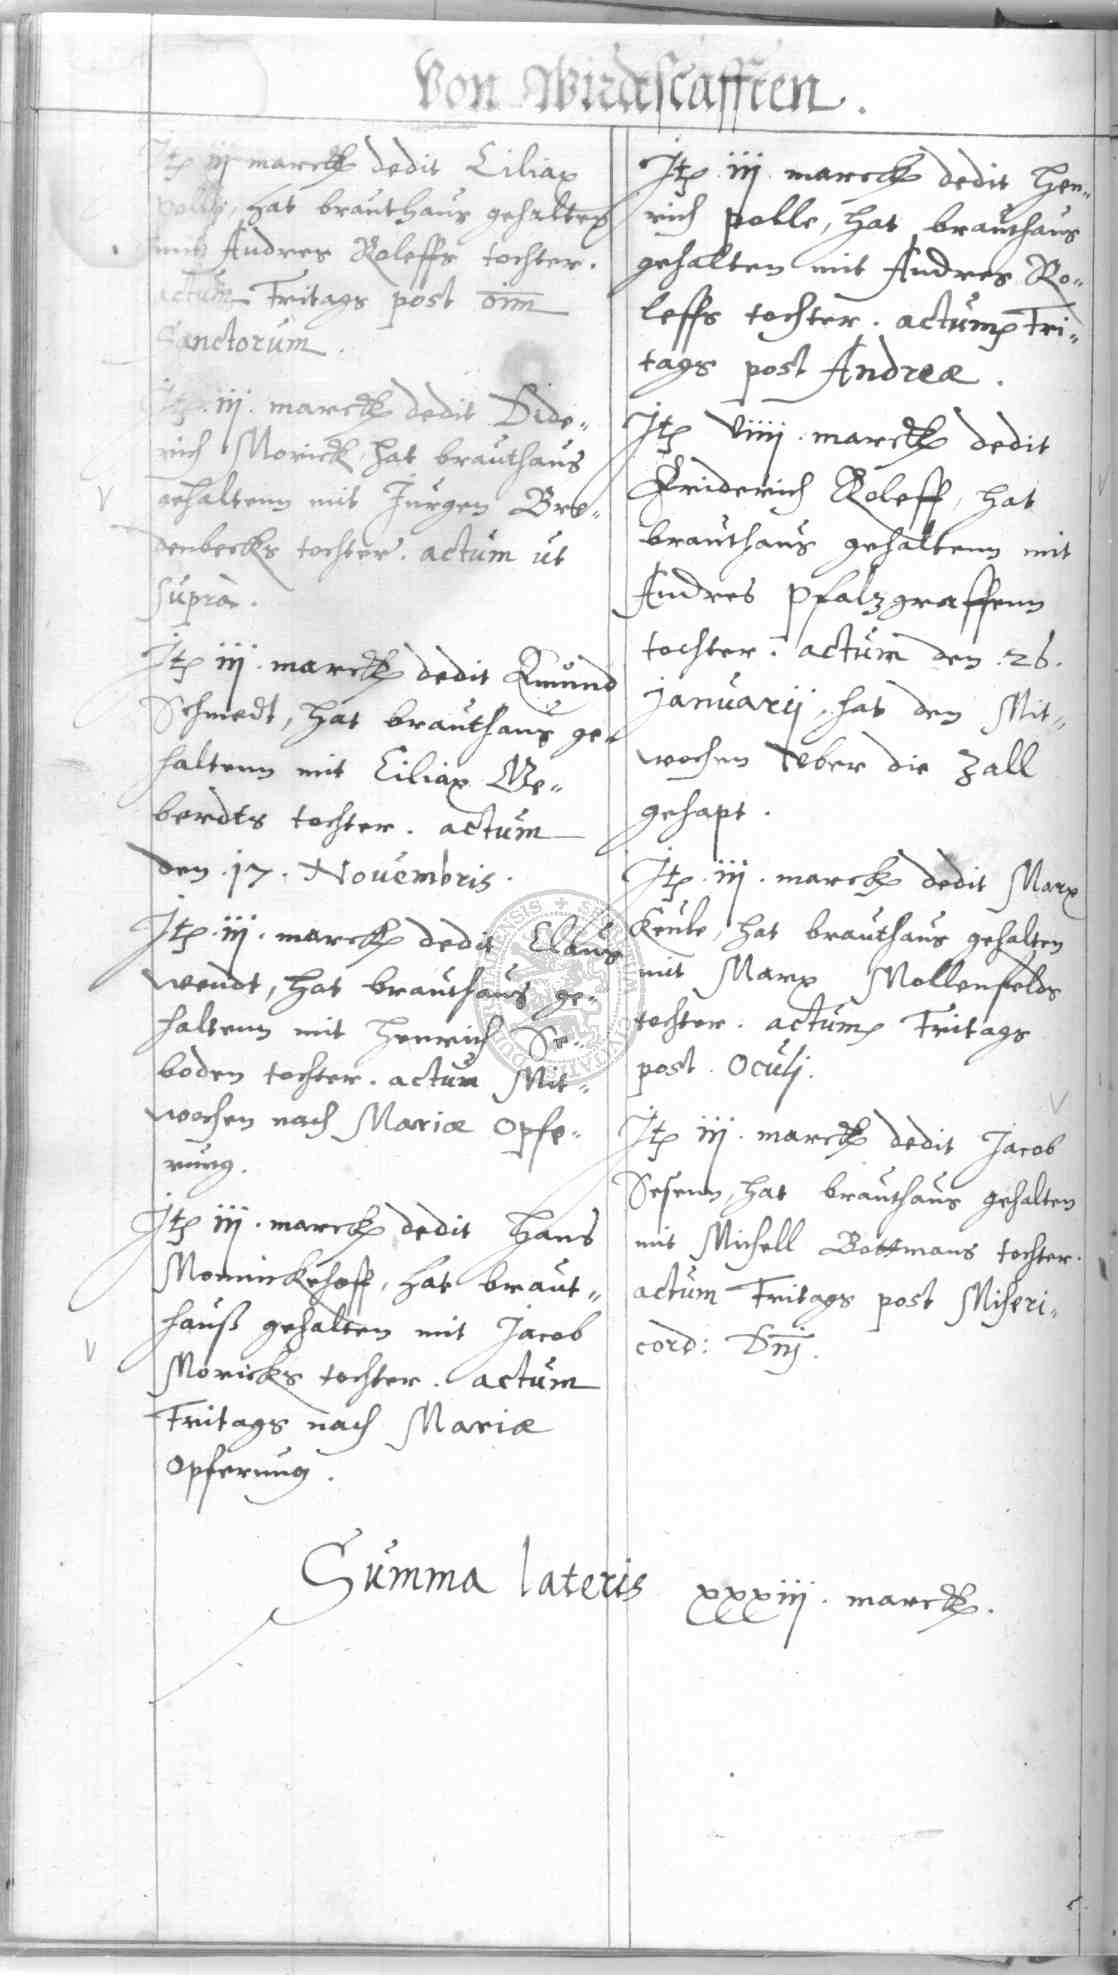 Von Wirdtscafften.
Itp iij marck dedit Ciliax
Polle, hat brauthaus gehalten
mit Andres Roleffs tochter.
actum Fritags post oim
Sanctorum.
Itp. iij. marck dedit Dide„
rich Morick, hat brauthaus
gehaltenn mit Jurgen Bre„
denbecks tochter. actum ut
supra.
Itp iij. marck dedit
Schmedt, hat brauthaus ge„
haltenn mit Ciliax We„
berdts tochter. actum
den .17. Novembris.
Itp. iij. marck dedit Claus
wendt, hat brauthaus ge„
haltenn mit Henrich Se„
boden tochter. actum Mit„
wochen nach Mariæ Opfe„
rung.
Itp iij. marck dedit Hans
Monnickehoff, hat braut„
hauß gehalten mit Jacob
Moricks tochter. actum
Fritags nach Mariæ
Opferung.
Itp. iij. marck dedit Hen„
rich Polle, hat brauthaus
gehalten mit Andres Ro„
leffs tochter. actum Fri„
tags post Andreæ.
Itp viiij. marck dedit
Friderich Roleff, hat
brauthaus gehaltenn mit
Andres Pfalzgraffenn
tochter. actum den .26.
Januarij, hat den Mit„
wochen uber die Zall
gehapt.
Itp. iij. marck dedit Marx
Keule, hat brauthaus gehalten
mit Marx Mollenfelds
tochter. actum Fritags
post. Oculj.
Itp iij. marck dedit Jacob
Sesenn, hat brauthaus gehalten
mit Michell Bottmans tochter.
actum Fritags post Miseri„
cord: Dnj.
Summa lateris xxxiij. marck.